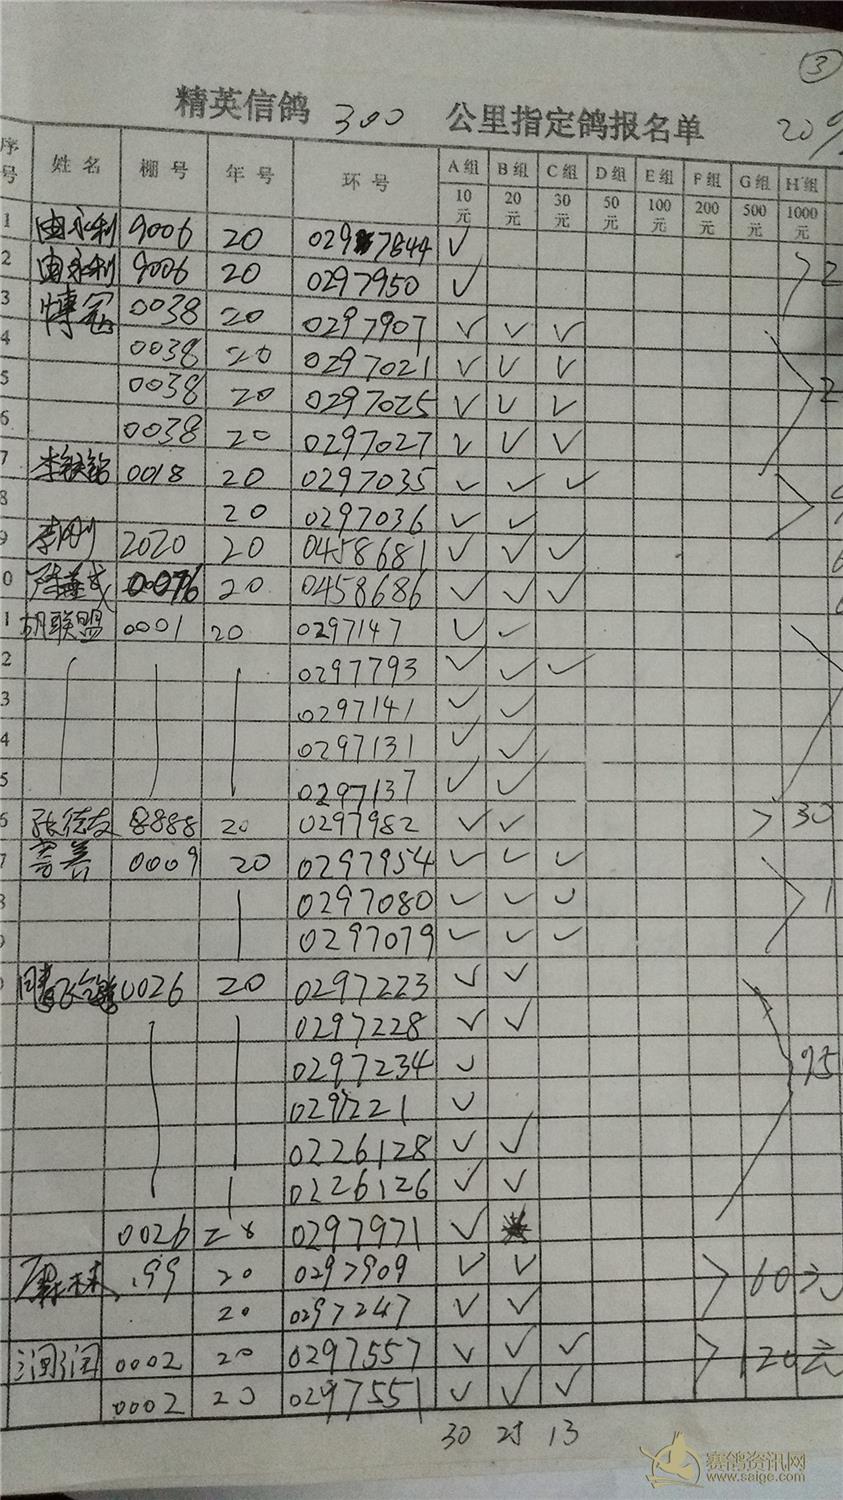 ③
精英信鸽 300 公里指定鸽报名单 209
序号 姓名 棚号 年号 环号 A组 B组 C组 D组 E组 F组 G组 H组
10元 20元 30元 50元 100元 200元 500元 1000元
1 由永利 9006 20 0297844 ✓
2 由永利 9006 20 0297950 ✓ 2
3 博冠 0038 20 0297907 ✓ ✓ ✓
4 0038 20 0297021 ✓ ✓ ✓
5 0038 20 0297025 ✓ ✓ ✓ 2
6 0038 20 0297027 ✓ ✓ ✓
7 李铁铭 0018 20 0297035 ✓ ✓ ✓
8 20 0297036 ✓ ✓
9 李刚 2020 20 0458681 ✓ ✓ ✓
0 0076 20 0458686 ✓ ✓ ✓
1 胡联盟 0001 20 0297147 ✓ ✓
2 0297793 ✓ ✓ ✓
3 0297141 ✓ ✓
4 0297131 ✓ ✓
5 0297137 ✓ ✓
6 张德友 8888 20 0297982 ✓ ✓ 30
7 0009 20 0297954 ✓ ✓ ✓
8 0297080 ✓ ✓ ✓ 1
9 0297079 ✓ ✓ ✓
0026 20 0297223 ✓ ✓
0297228 ✓ ✓
0297234 ✓ 95
0297221 ✓
0226128 ✓ ✓
0226126 ✓ ✓
0026 20 0297971 ✓
199 20 0297909 ✓ ✓ 60元
20 0297247 ✓ ✓
润润 0002 20 0297557 ✓ ✓ ✓ 120元
0002 20 0297551 ✓ ✓ ✓
30 13
赛鸽资讯网
www.saige.com